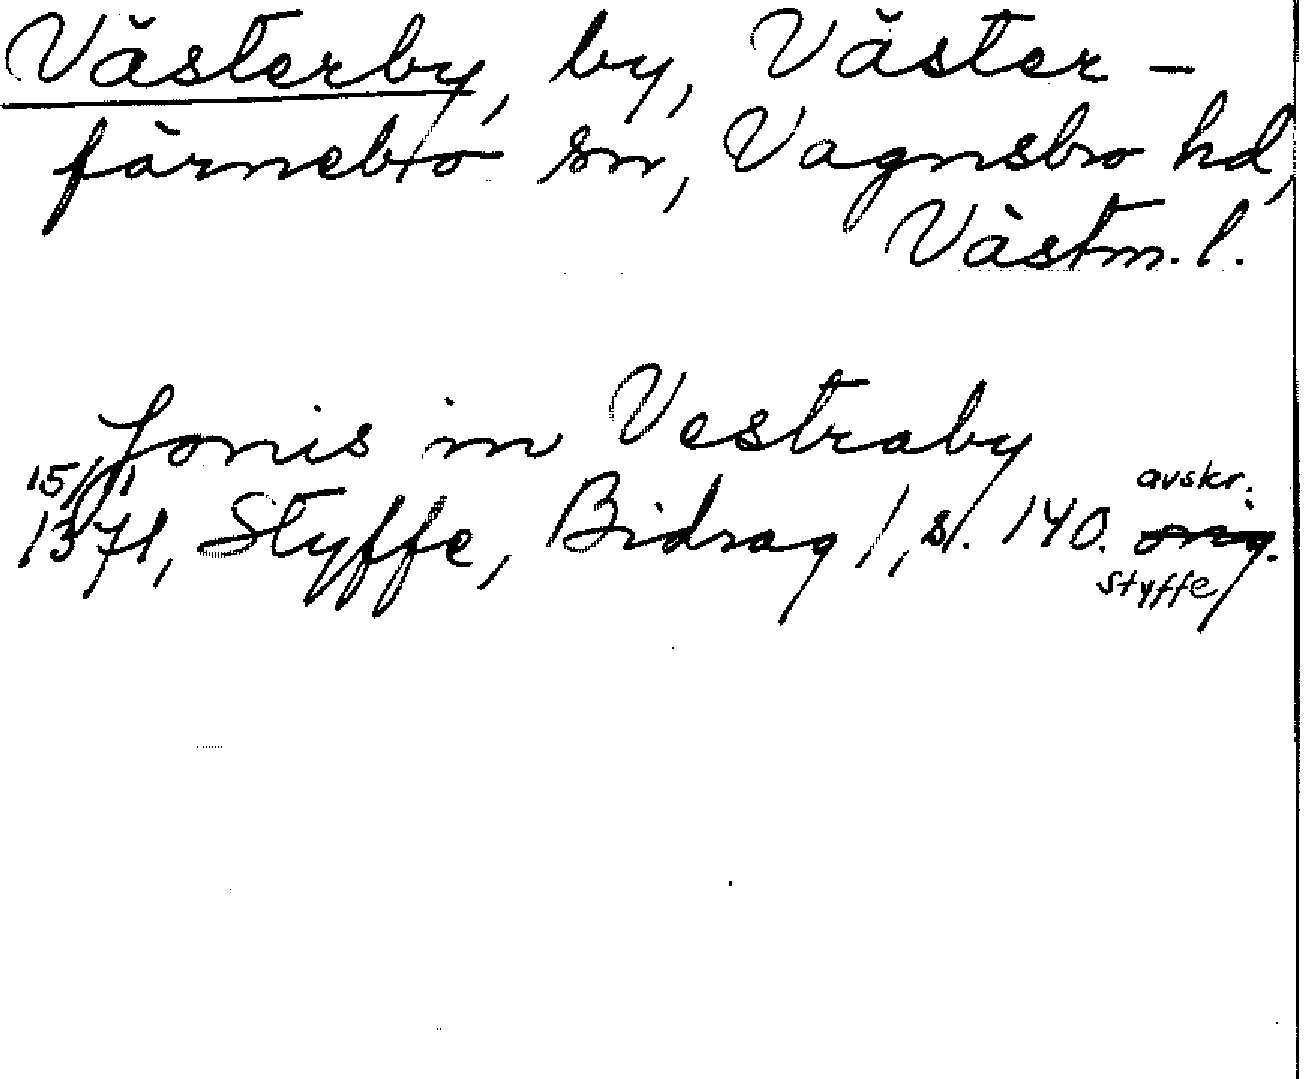 Västerby, by, Väster-
färnebo sn, Vagnsbro hd,
Västm. l.
Jonis in Vestraby
15/11 avskr.
1371, Styffe, Bidrag 1, s. 140. orig.
Styffe